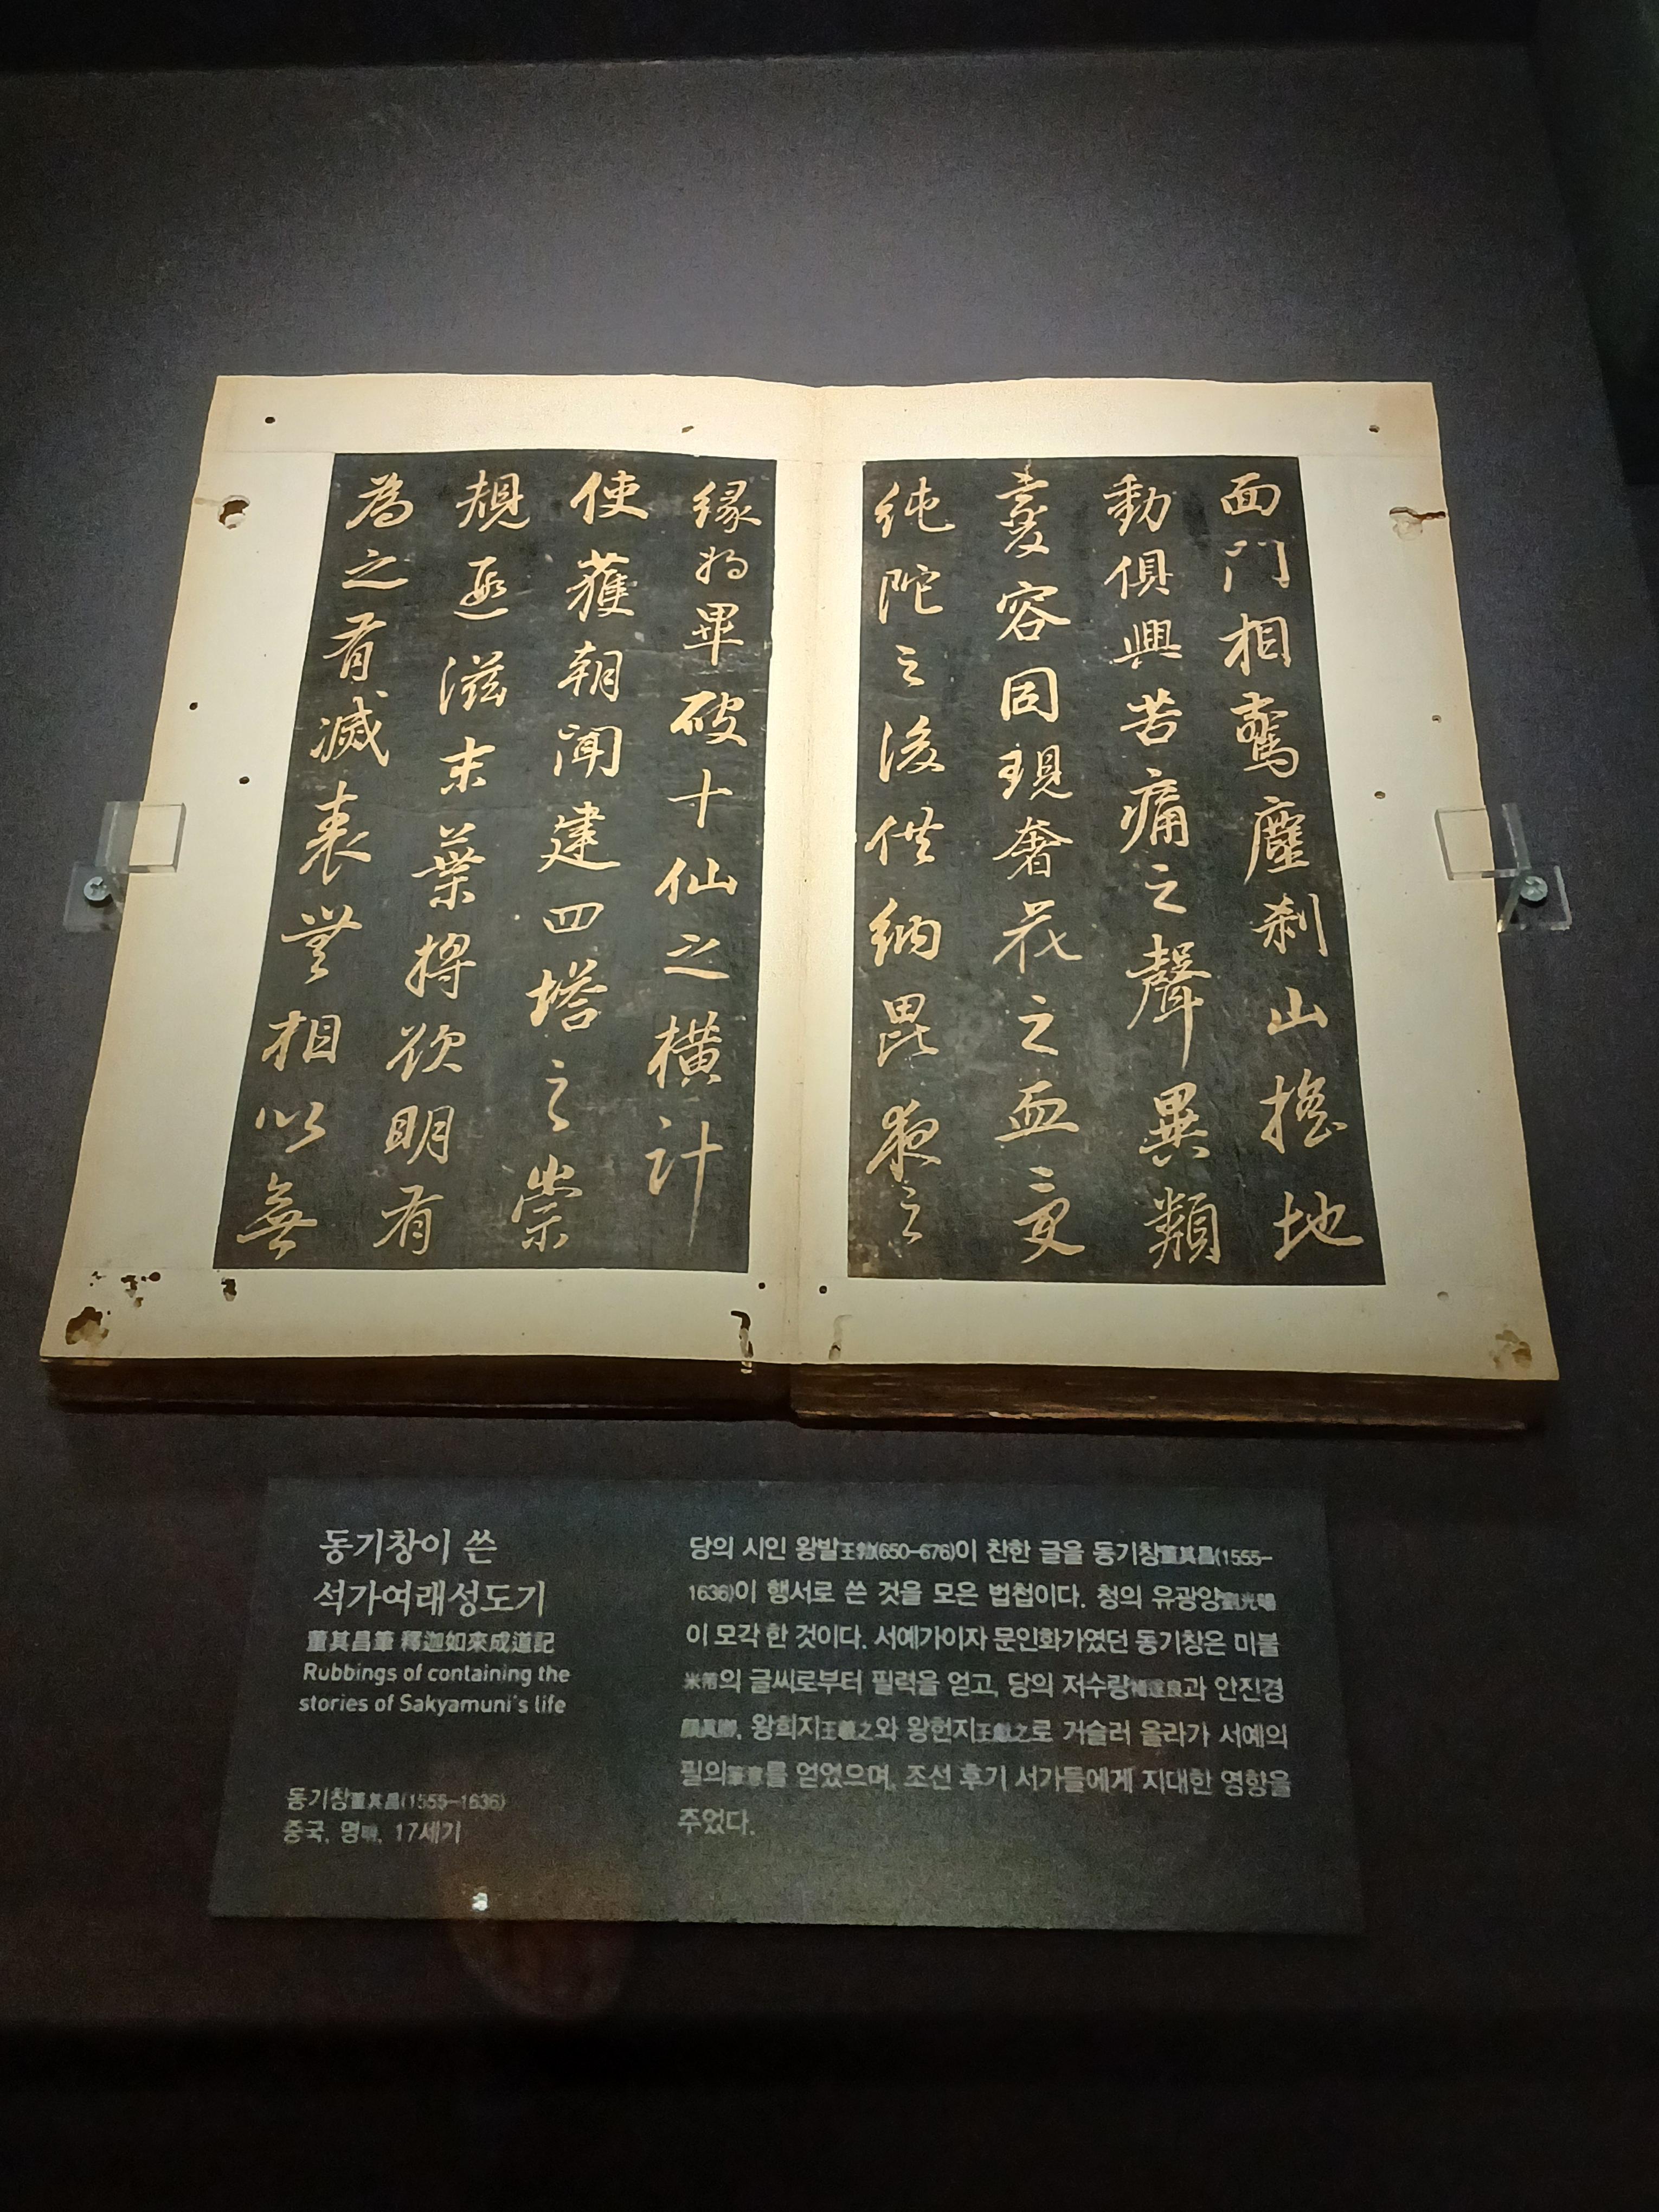 面門相驚塵刹山搖地
動俱興苦痛之聲異類
變容同現奢花之血受
純陀之後供納毘夜之
緣將畢破十仙之橫計
使獲朝聞建四塔之崇
規遐滋末葉將欲明有
為之有滅表無相以無
동기창이 쓴
석가여래성도기
董其昌筆 釋迦如來成道記
Rubbings of containing the
stories of Sakyamuni's life
동기창董其昌(1555-1636)
중국, 명明, 17세기
당의 시인 왕발王勃(650-676)이 찬한 글을 동기창董其昌(1555-
1636)이 행서로 쓴 것을 모은 법첩이다. 청의 유광양劉光暘
이 모각 한 것이다. 서예가이자 문인화가였던 동기창은 미불
米芾의 글씨로부터 필력을 얻고, 당의 저수량褚遂良과 안진경
顔眞卿, 왕희지王羲之와 왕헌지王獻之로 거슬러 올라가 서예의
필의筆意를 얻었으며, 조선 후기 서가들에게 지대한 영향을
주었다.